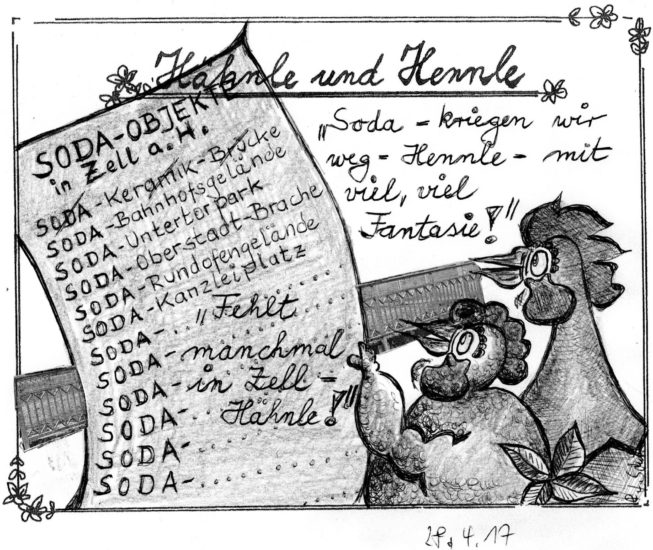 Hähnle und Hennle
SODA-OBJEKTE
in Zell a.H.
SODA-Keramik-Brücke
SODA-Bahnhofsgelände
SODA-Unterterpark
SODA-Oberstadt-Brache
SODA-Rundofengelände
SODA-Kanzleiplatz
SODA-..........
SODA-
SODA-
SODA-..........
SODA-..........
SODA-..........
"Soda - kriegen wir
weg - Hennle - mit
viel, viel
Fantasie!"
„Fehlt
manchmal
in Zell -
Hähnle!"